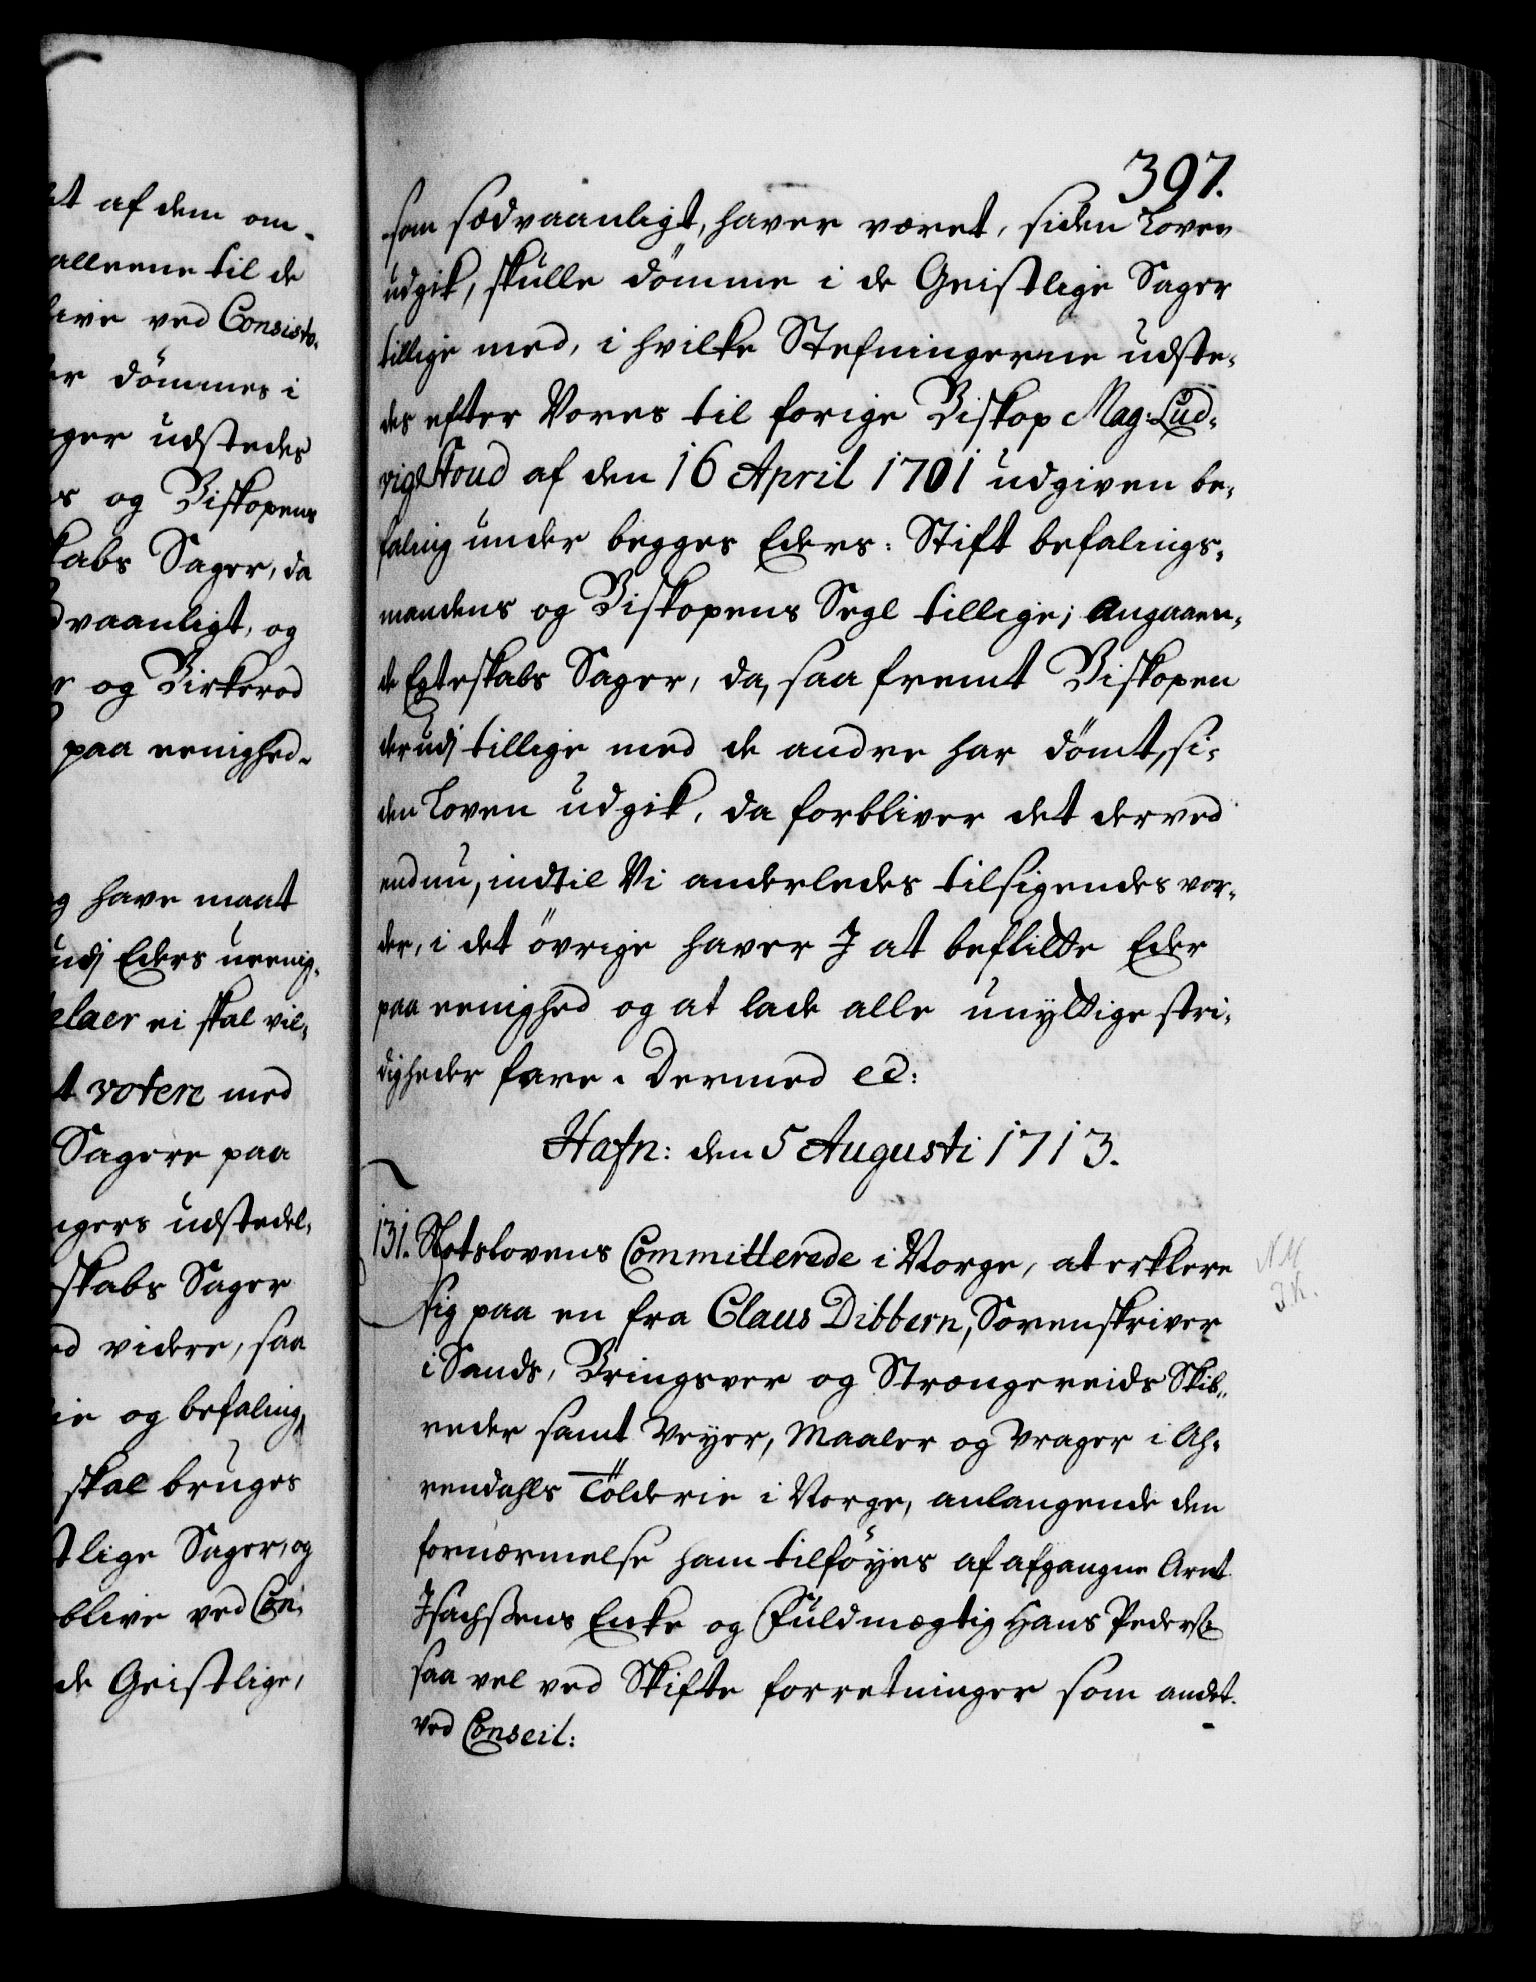 et af dem om-
alleene til de
live ved Consisto-
er dömmes i
ger udstedes
og Biskopens
kabs Sager, da
dvaanligt, og
og Birkerod
paa eenighed-
og have maat
udj Eders ueenig-
ei skal vil-
t votere med
Sagere paa
ngers udstedel-
skabs Sager
ed videre, saa
og befaling,
skal bruges
tlige Sager, og
blive ved Con-
de Geistlige,
397.
som sædvaanligt, haver været, siden Loven
udgik, skulle dömme i de Geistlige Sager
tillige med, i hvilke Stefningerne udste-
des efter Vores til forige Biskop Mag: Lud-
vig Stoud af den 16 April 1701 udgiven be-
faling under begges Eders: Stift befalings-
mandens og Biskopens Segl tillige; Angaaen-
de Egteskabs Sager, da, saa fremt Biskopen
derudj tillige med de andre har dömt, si-
den Loven udgik, da forbliver det derved
endnu, indtil Vi anderledes tilsigendes vor-
der, i det övrige haver I at beflitte Eder
paa eenighed og at lade alle unyttige stri-
digheder fare. Dermed ec:
Hafn: den 5 Augusti 1713.
131. Slotslovens Committerede i Norge, at erklere
sig paa en fra Claus Dibbern, Sorenskriver
i Sands, Bringsver og Strængereids Skib-
reder samt Veyer, Maaler og Vrager i Ah-
rendahls Tölderie i Norge, anlangende den
fornærmelse ham tilföyes af afgangne Arnt
Isachssens Enke og Fuldmægtig Hans Pederss:
saa vel ved Skifte forretninger som andet.
Ved Conseil:
N.M.